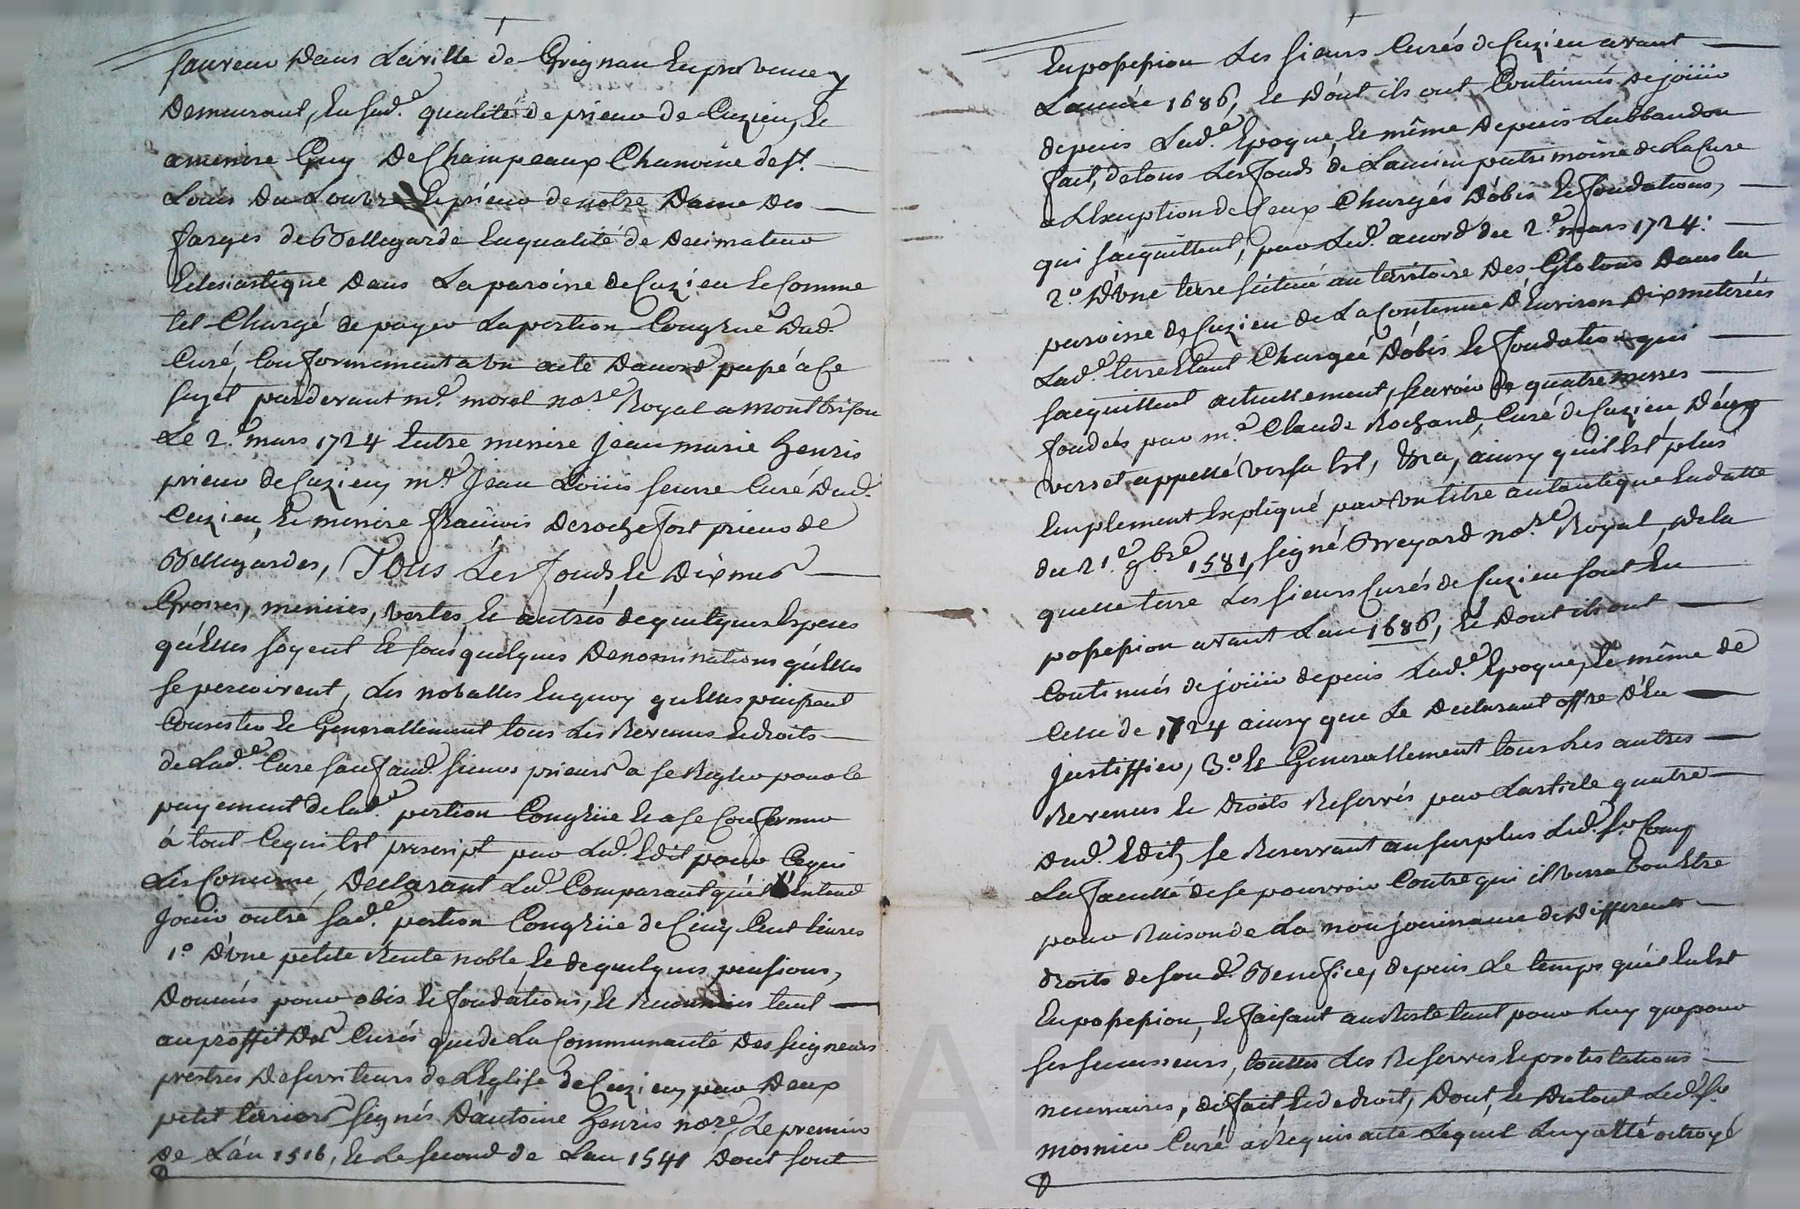 Sauveur Dans La ville de Grignan En provence y
Demeurant, En sad.e qualité de prieur de Cuzieu, Et
a messire Guy De Champeaux Chanoine de St.
Louis Du Louvre Et prieur de notre Dame Des
farges de Bellegarde En qualité de Decimateur
Eclesiastique Dans La paroisse de Cuzieu Et Comme
tel Chargé de payer La portion Congrue Dud.
Curé, Conformement a Un acte D'acord passé à Ce
sujet pardevant m.e morel no.re Royal a montbrison
Le 2.e mars 1724 Entre messire jean marie henris
prieur de Cuzieu, m.e Jean Louis seurre Curé Dud.
Cuzieu, Et messire françois De rochefort prieur de
Bellegardes, Tous Les fonds, Et Dixmes
Grosses, menües, Vertes, Et autres de quelques Especes
qu'Elles soyent Et sous quelques Denominations qu'Elles
se percoivent, Les novalles En quoy qu'Elles puissent
Consister Et Generallement tous Les Revenus Et droits
de Lad.e Cure sauf aud. sieurs prieurs a se Regler pour le
payement de lad.e portion Congrüe Et a se Conformer
à tout Ce qui Est prescript par Led. Edit pour Ce qui
Les Concerne, Déclarant Led. Comparant qu'il Entend
Jouir outre sad.e portion Congrüe de Cinq Cent livres
1.o D'Une petite Rente noble Et de quelques pensions,
Donnés pour obis Et fondations, Et Reconnües tant
au proffit Des Curés que de La Communauté Des seigneurs
prestres Desserviteurs de L'Eglise de Cuzieu, par Deux
petit terriers signés D'antoine henris no.re, Le premier
De L'an 1516, Et Le second de L'an 1541 Dont sont
En possession Les sieurs Curés de Cuzieu avant
L'année 1686, Et Dont ils ont Continués De joüir
depuis Lad.e Epoque, Et même Depuis L'abbandon
fait, de tous Les fonds de L'ancien patrimoine de La Cure
a L'Exception de Ceux Chargés D'obis Et fondations,
qui s'acquittent, par Led. accord du 2.e mars 1724:
2.o D'Une terre scituée au territoire Des Glotons Dans la
paroisse de Cuzieu de La Contenue D'Environ Dix meterées
Lad.e terre Etant Chargée D'obis Et fondation qui
s'acquittent actuellement, scavoir de quatre messes
fondées par m.e Claude Rochand, Curé de Cuzieu, Deux
Verset appellé Versa Est, ainsy qu'il Est plus
Emplement Expliqué par Un titre autantique En datte
du 21.e 9bre 1581, signé Breyard no.re Royal, de la
quelle terre Les sieurs Curés de Cuzieu sont En
possession avant L'an 1686, Et Dont ils ont
Continués de joüir depuis Lad.e Epoque, Et même de
Celle de 1724 ainsy que Le Declarant offre D'En
justiffier, 3.o Et Generallement tous Les autres
Revenus Et Droits Reservés par L'article quatre
Dud. Edit, se Reservant au surplus Led. Sr Comp
La faculté de se pourvoir Contre qui il Verra bon Etre
pour Raison de La non jouissance de Differents
droits de son d. Benefice, depuis Le temps qu'il En Est
En possession, Et faisant au Reste tant pour Luy que pour
ses successeurs, touttes Les Reserves Et protestations
necessaires, de fait Et de droit, Dont, Et Du tout Led. Sr
mosnier Curé a Requis acte Lequel Luy a Eté octroyé